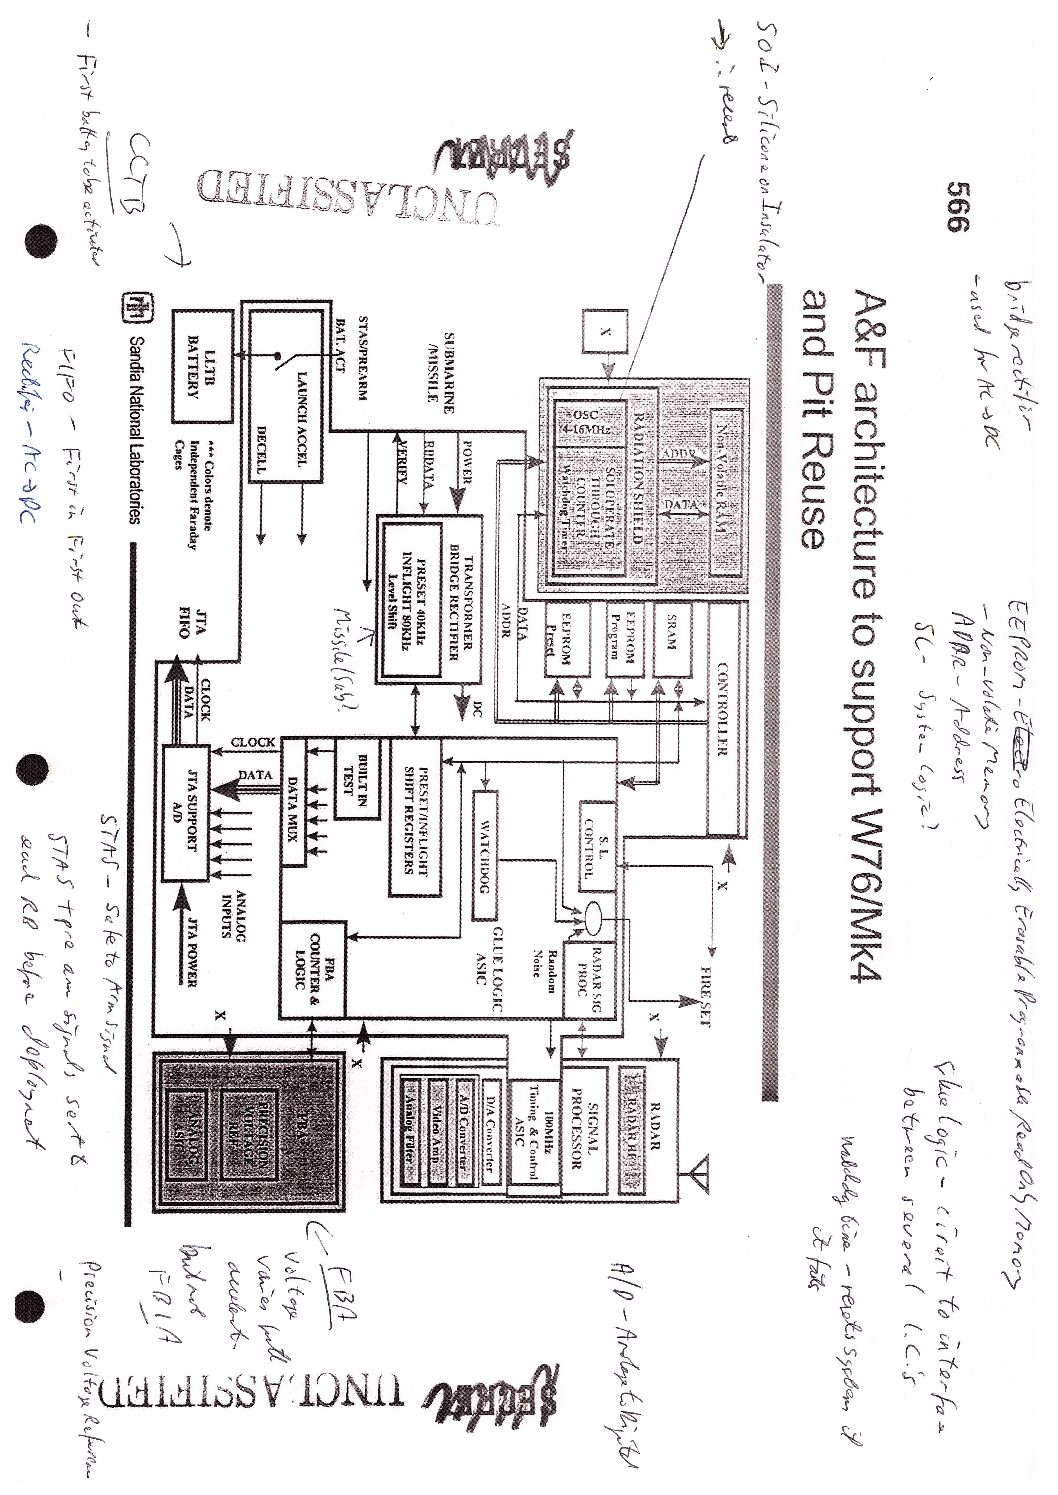 566
A&F architecture to support W76/Mk4
and Pit Reuse
UNCLASSIFIED
SOI - Silicone on Insulator
→ ∴ recent
bridge rectifier
- used for AC→DC
EEPROM - Electrically Erasable Programmable Read Only Memory
- Non-volatile Memory
ADDR - Address
SC - System Logic?
Glue logic - circuit to interface
between several I.C.'s
watchdog time - resets system if
it fails
A/D - Analog to Digital
X
Non Volatile RAM
ADDR
DATA
RADIATION SHIELD
OSC
4-16MHz
SOI OPERATE
THROUGH
COUNTER
Watchdog Timer
CONTROLLER
SRAM
EEPROM
Program
EEPROM
Preset
DATA
ADDR
X
SUBMARINE
/MISSILE
POWER
RDDATA
VERIFY
TRANSFORMER
BRIDGE RECTIFIER
PRESET 40KHz
INFLIGHT 80KHz
Level Shift
DC
Missile (Sub?)
STAS/PREARM
BAT. ACT
LAUNCH ACCEL
DECELL
LLTB
BATTERY
*** Colors denote
Independent Faraday
Cages
S.L.
CONTROL
WATCHDOG
PRESET/INFLIGHT
SHIFT REGISTERS
BUILT IN
TEST
DATA MUX
GLUE LOGIC
ASIC
Random
Noise
RADAR SIG
PROC
FIRE SET
FBA
COUNTER &
LOGIC
CLOCK
DATA
JTA SUPPORT
A/D
ANALOG
INPUTS
JTA POWER
CLOCK
DATA
JTA
FIFO
X
RADAR
RADAR RF
SIGNAL
PROCESSOR
100MHz
Timing & Control
ASIC
D/A Converter
A/D Converter
Video Amp
Analog Filter
X
X
FBA
PRECISION
VOLTAGE
REF
Sandia National Laboratories
CCTB
- First battery to be activated
FIFO - First in First out
Rectify - AC→DC
STAS - Safe to Arm Signal
STAS + pre arm signals sent to
and RB before deployment
FBA
voltage
varies with
acceleration
but not
FBIA
Precision Voltage Reference
UNCLASSIFIED